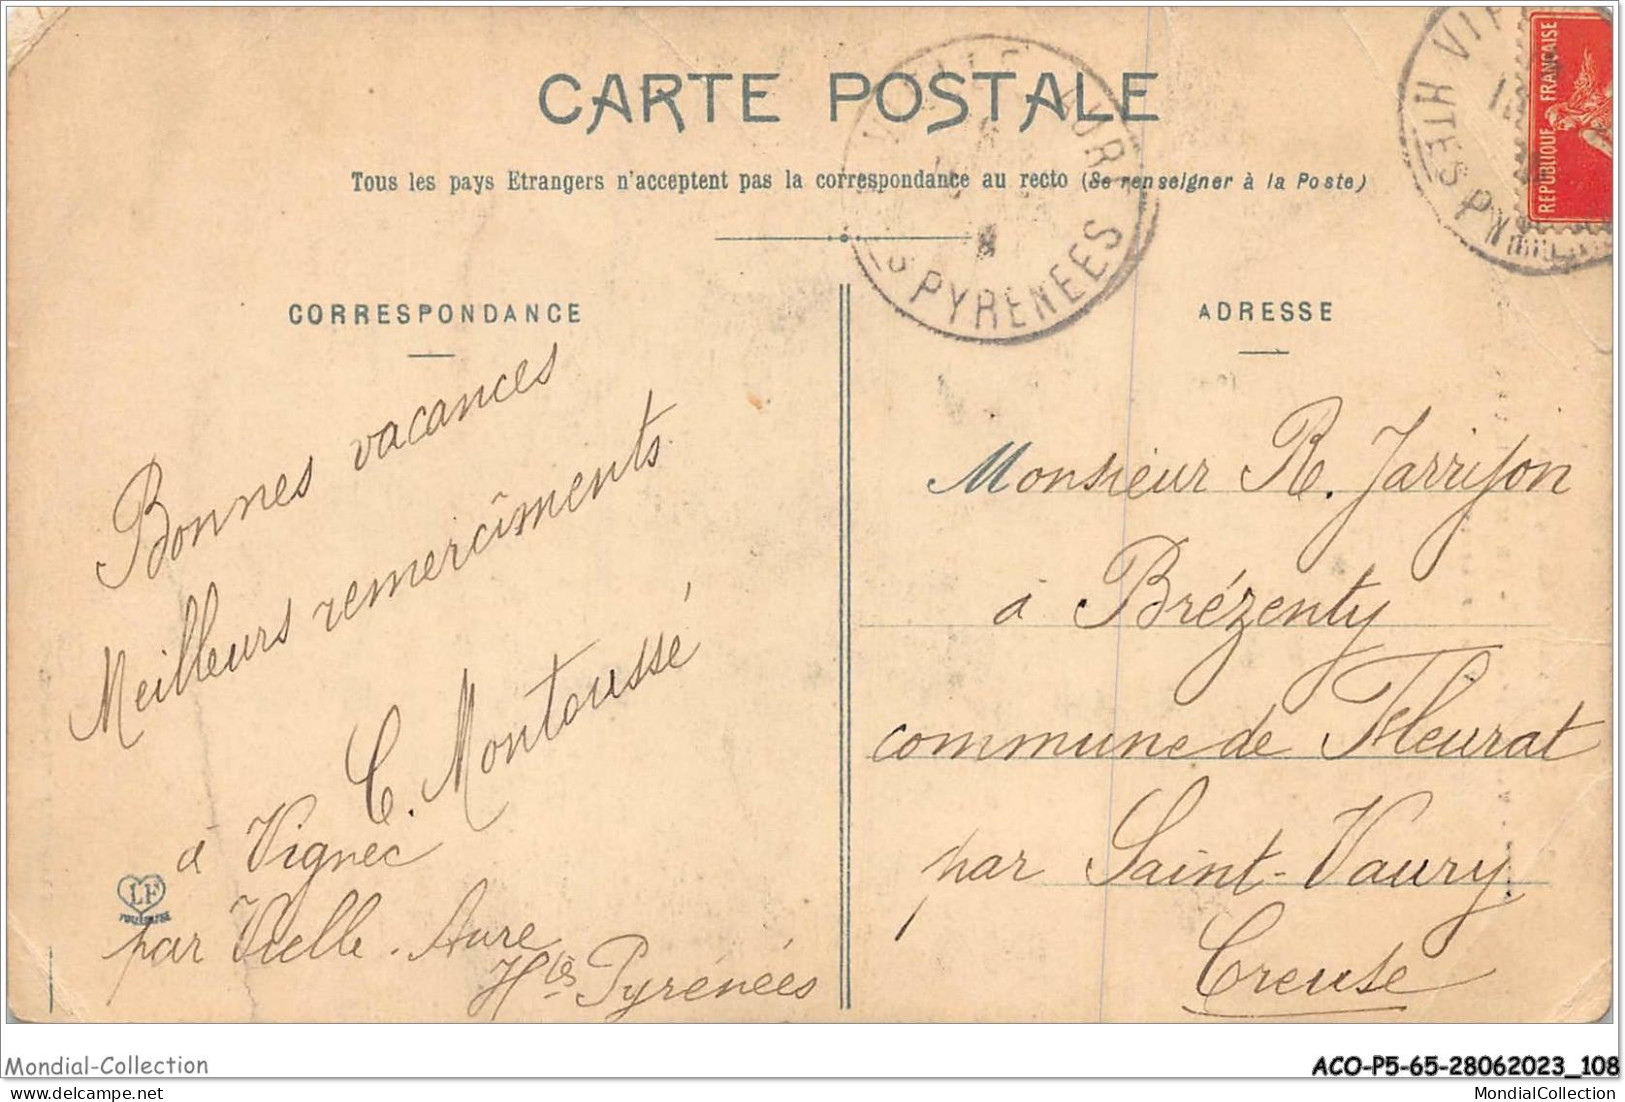 CARTE POSTALE
Tous les pays Etrangers n'acceptent pas la correspondance au recto (Se renseigner à la Poste)
CORRESPONDANCE
Bonnes vacances
Meilleurs remercîments
C. Montoussé
à Vignec
par Vielle-Aure
Htes Pyrénées
LF
TOULOUSE
ADRESSE
Monsieur R. Jarrijon
à Brézenty
commune de Fleurat
par Saint-Vaury
Creuse
PYRENEES
HTES PYR
REPUBLIQUE FRANÇAISE
Mondial-Collection
ACO-P5-65-28062023_108
MondialCollection